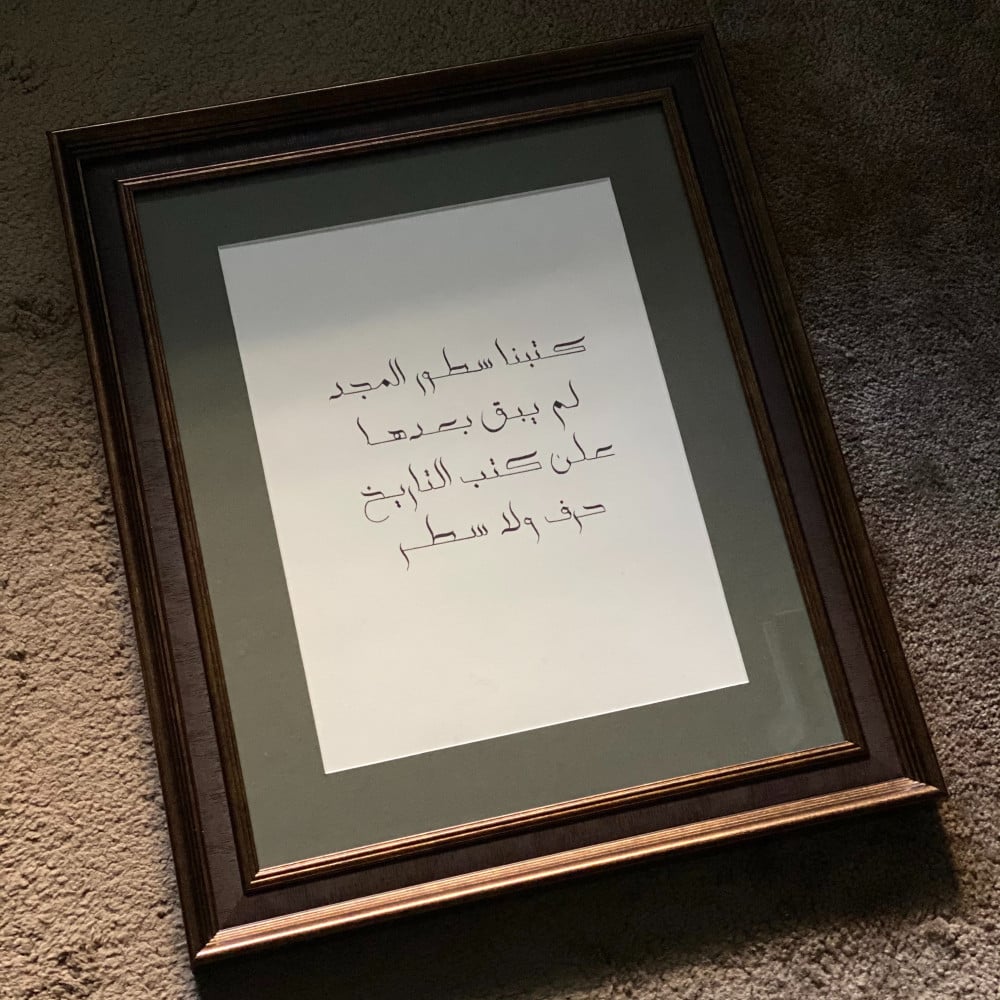 كتبنا سطور المجد
لم يبق بعدها
على كتب التاريخ
حرف ولا سطر